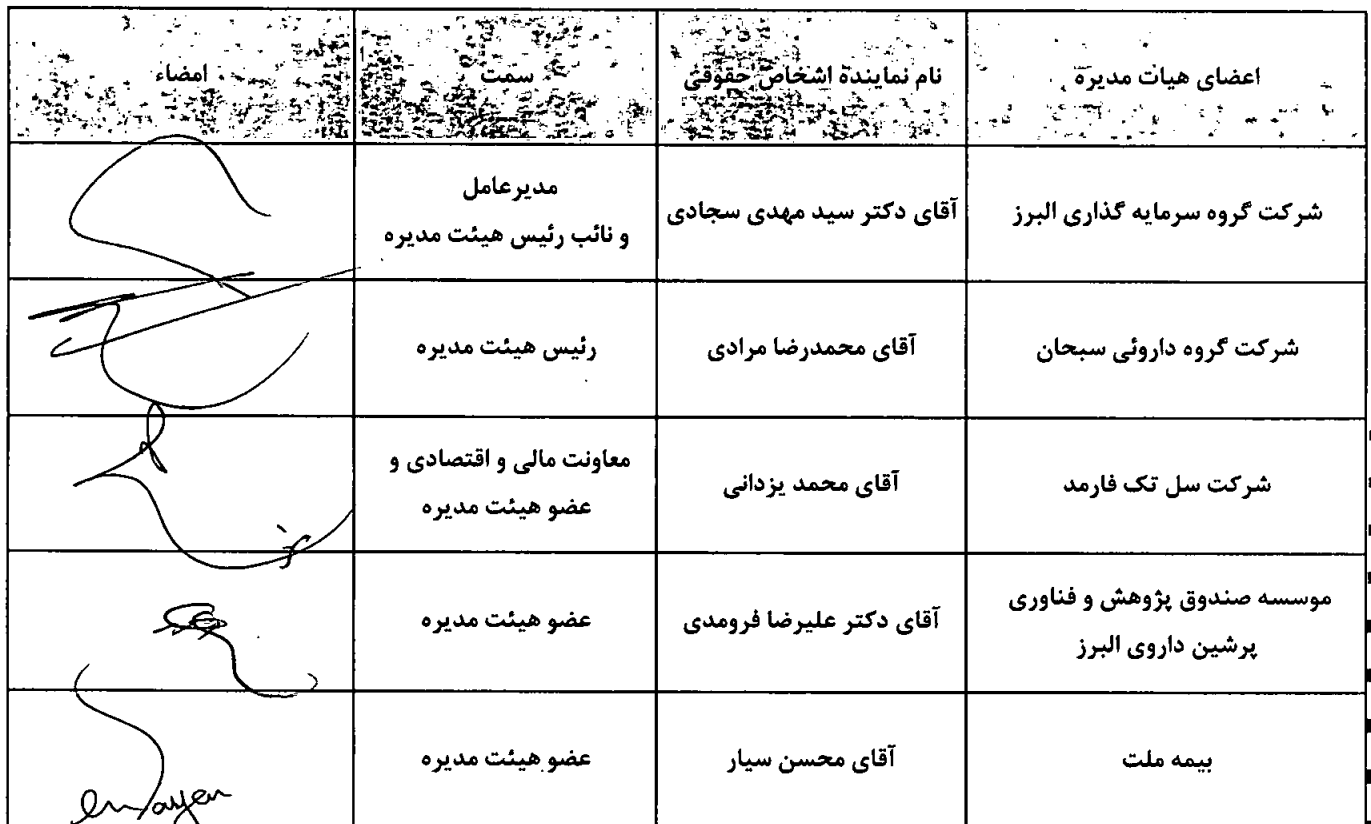 اعضای هیات مدیره
نام نماینده اشخاص حقوقی
سمت
امضاء
شرکت گروه سرمایه گذاری البرز
آقای دکتر سید مهدی سجادی
مدیرعامل
و نائب رئیس هیئت مدیره
شرکت گروه داروئی سبحان
آقای محمدرضا مرادی
رئیس هیئت مدیره
شرکت سل تک فارمد
آقای محمد یزدانی
معاونت مالی و اقتصادی و
عضو هیئت مدیره
موسسه صندوق پژوهش و فناوری
پرشین داروی البرز
آقای دکتر علیرضا فرومدی
عضو هیئت مدیره
بیمه ملت
آقای محسن سیار
عضو هیئت مدیره